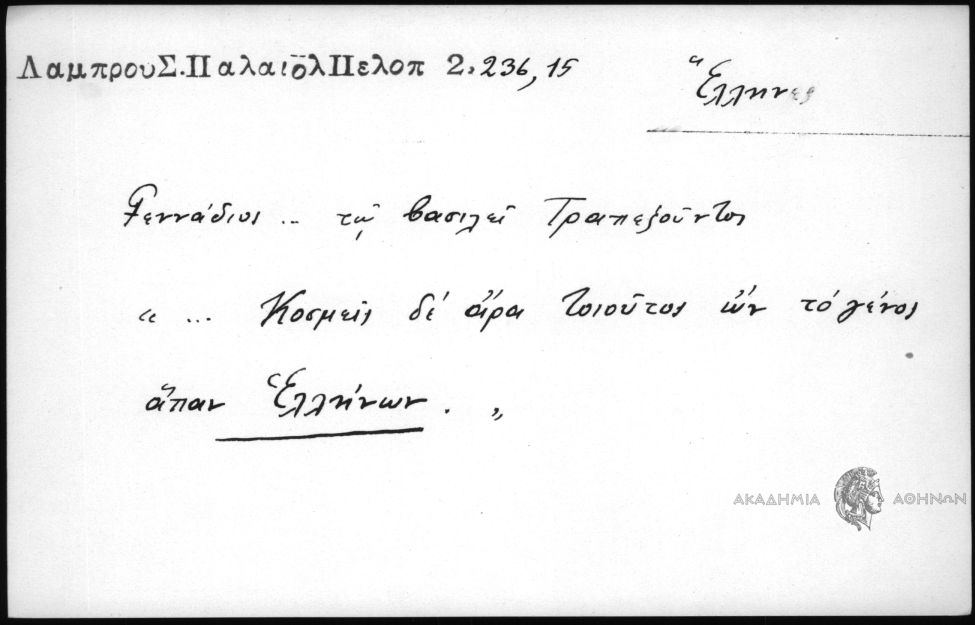 ΛαμπρουΣ.ΠαλαιολΠελοπ 2.236,15
Ἕλληνες
Γεννάδιος .. τῷ βασιλεῖ Τραπεζοῦντος
“ ... Κοσμεῖς δέ ἄρα τοιοῦτος ὤν τό γένος
ἅπαν Ἑλλήνων . „
ΑΚΑΔΗΜΙΑ ΑΘΗΝΩΝ